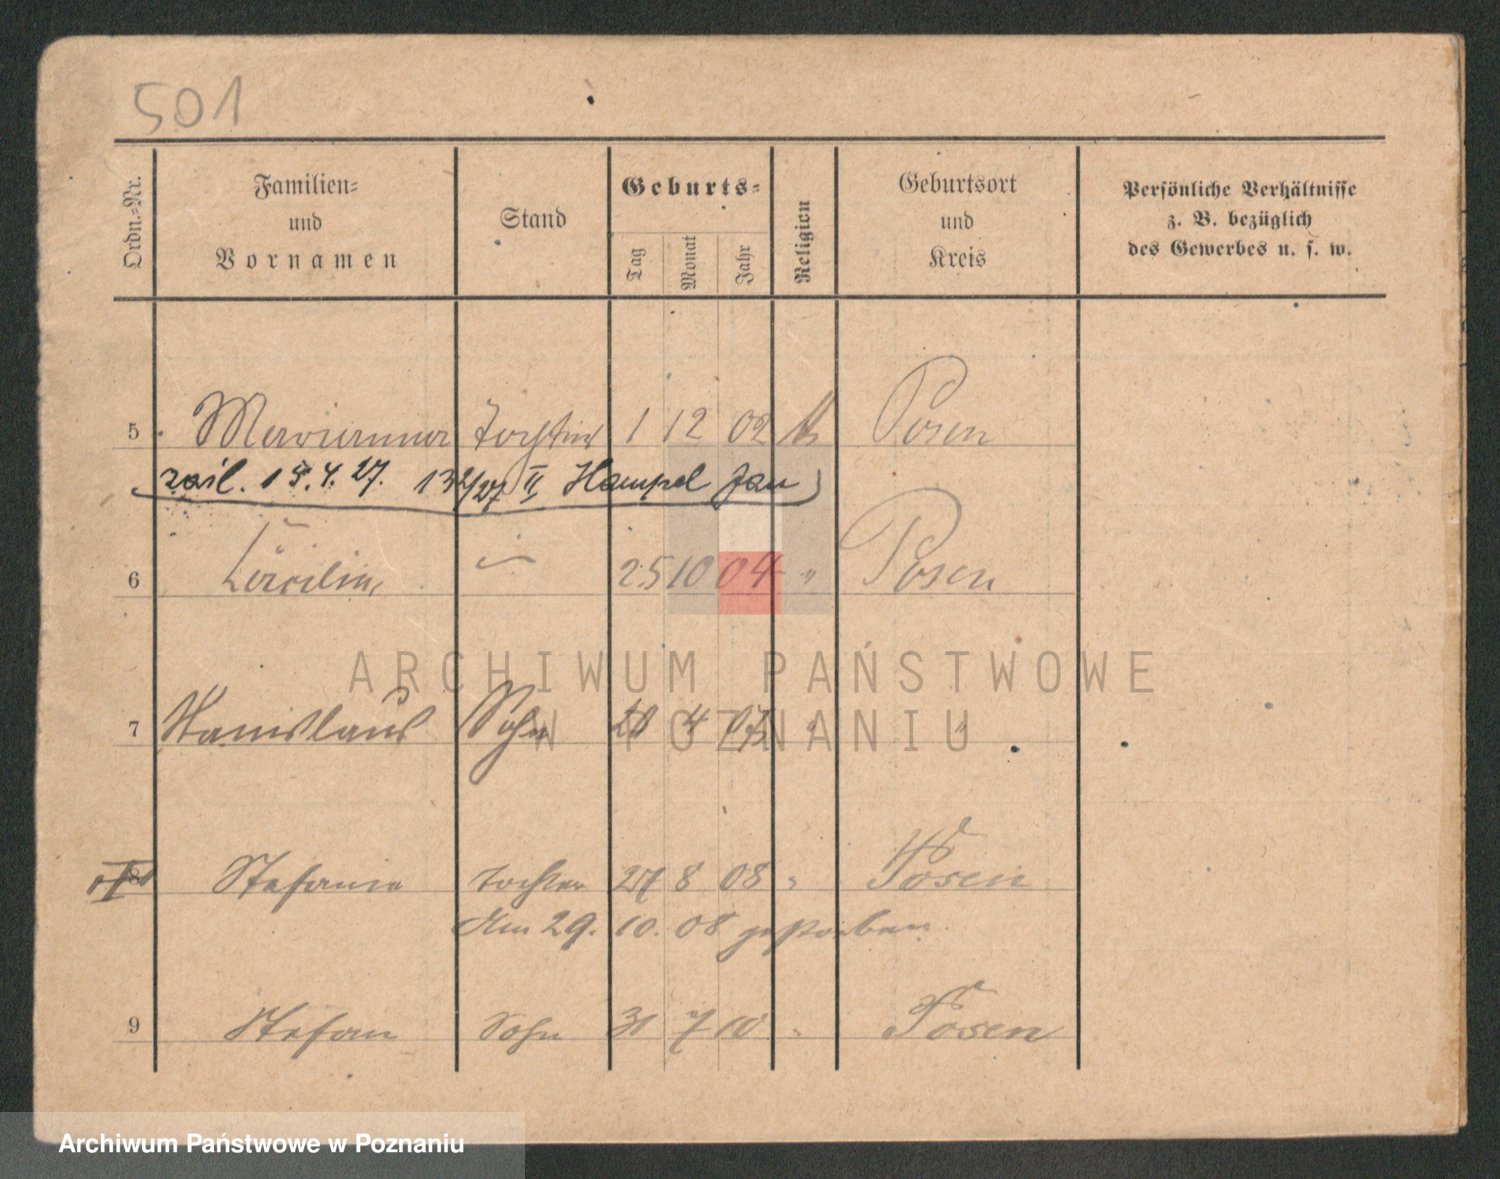 501
Ordn.-Nr. Familien- und Vornamen Stand Geburts- Tag Monat Jahr Religion Geburtsort und Kreis Persönliche Verhältnisse z. B. bezüglich des Gewerbes u. s. w.
5 Marianna Tochter 1 12 02 k Posen
zaśl. 15.4.27. 132/27 II Hampel Jan
6 Cäcilie 25 10 04 " Posen
7 Stanislaus Sohn 20 4 07 " "
8 Stefanie Tochter 27 8 08 " Posen
Am 29. 10. 08 gestorben
9 Stefan Sohn 31 7 10 " Posen
ARCHIWUM PAŃSTWOWE
W POZNANIU
Archiwum Państwowe w Poznaniu